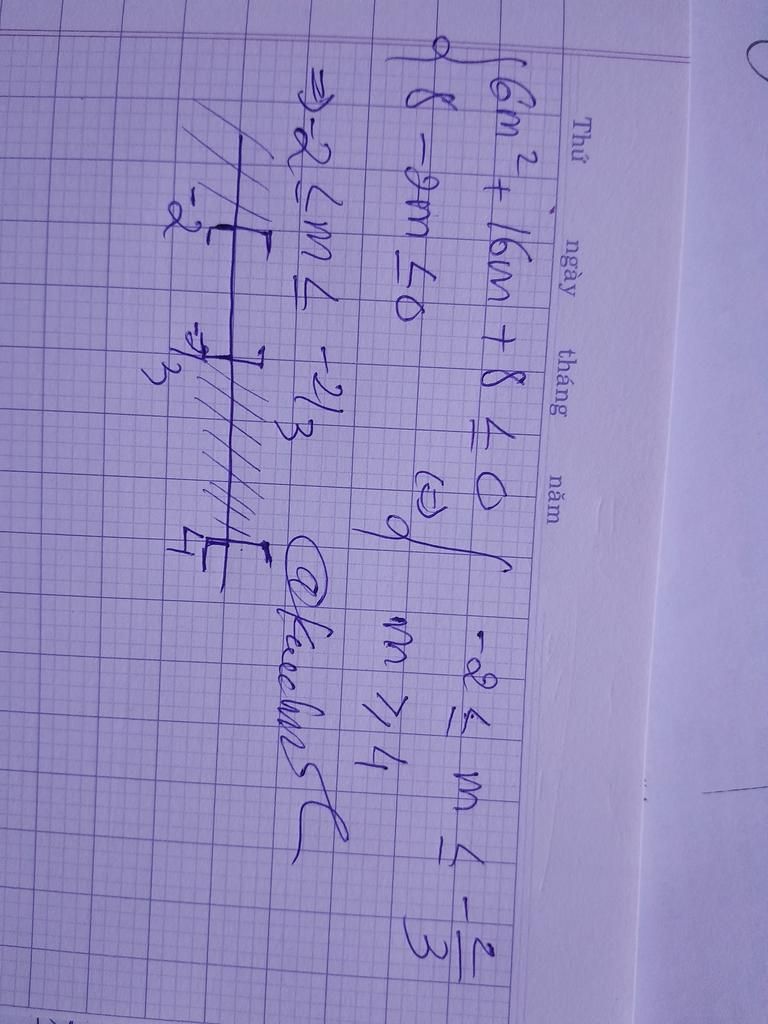 Thứ ngày tháng năm
{ 6m² + 16m + 8 ≤ 0 (=) { -2 ≤ m ≤ -2/3
8 - 2m ≤ 0 m ≥ 4
=> -2 ≤ m ≤ -2/3
-2 -2/3 4